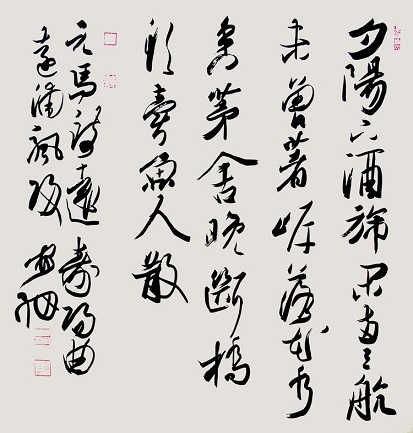 夕陽下酒旆閑兩三航
未曾著岸落花水
香茅舍晚斷橋
頭賣魚人散
元馬致遠壽陽曲
遠浦帆歸